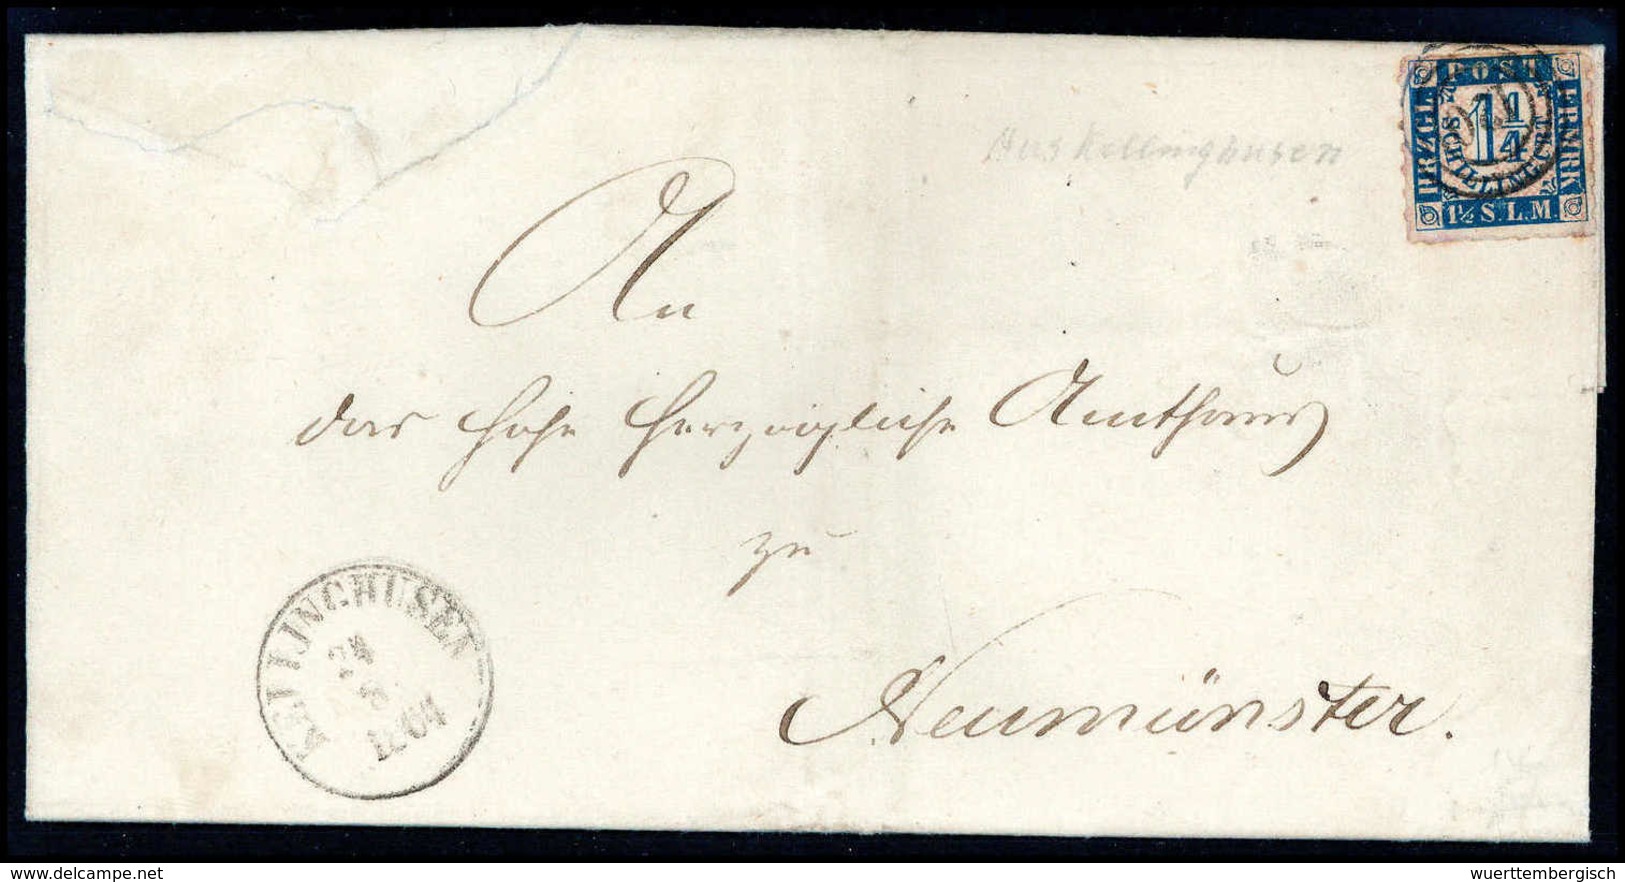 POST
HRZGL
FRMRK
1¼
SCHILLING CRT.
1⅓ S. L. M.
Aus Kellinghusen
An
das Hohe Herzogliche Amthaus
zu
Neumünster.
KELLINGHUSEN
24
8
1864
delcampe.net
wuerttembergisch